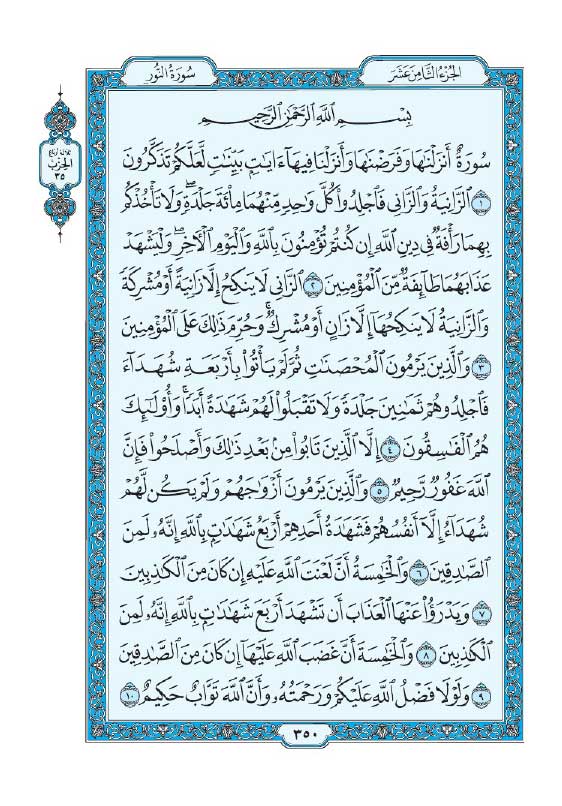 سُورَةُ النُّورِ
الجُزْءُ الثَّامِنَ عَشَرَ
ثلاثة أرباع
الحزب
٣٥
بِسْمِ ٱللَّهِ ٱلرَّحْمَٰنِ ٱلرَّحِيمِ
سُورَةٌ أَنزَلْنَٰهَا وَفَرَضْنَٰهَا وَأَنزَلْنَا فِيهَآ ءَايَٰتٍۭ بَيِّنَٰتٍ لَّعَلَّكُمْ تَذَكَّرُونَ
١ ٱلزَّانِيَةُ وَٱلزَّانِى فَٱجْلِدُوا۟ كُلَّ وَٰحِدٍ مِّنْهُمَا مِا۟ئَةَ جَلْدَةٍ ۖ وَلَا تَأْخُذْكُم
بِهِمَا رَأْفَةٌ فِى دِينِ ٱللَّهِ إِن كُنتُمْ تُؤْمِنُونَ بِٱللَّهِ وَٱلْيَوْمِ ٱلْءَاخِرِ ۖ وَلْيَشْهَدْ
عَذَابَهُمَا طَآئِفَةٌ مِّنَ ٱلْمُؤْمِنِينَ ٢ ٱلزَّانِى لَا يَنكِحُ إِلَّا زَانِيَةً أَوْ مُشْرِكَةً
وَٱلزَّانِيَةُ لَا يَنكِحُهَآ إِلَّا زَانٍ أَوْ مُشْرِكٌ ۚ وَحُرِّمَ ذَٰلِكَ عَلَى ٱلْمُؤْمِنِينَ
٣ وَٱلَّذِينَ يَرْمُونَ ٱلْمُحْصَنَٰتِ ثُمَّ لَمْ يَأْتُوا۟ بِأَرْبَعَةِ شُهَدَآءَ
فَٱجْلِدُوهُمْ ثَمَٰنِينَ جَلْدَةً وَلَا تَقْبَلُوا۟ لَهُمْ شَهَٰدَةً أَبَدًا ۚ وَأُو۟لَٰٓئِكَ
هُمُ ٱلْفَٰسِقُونَ ٤ إِلَّا ٱلَّذِينَ تَابُوا۟ مِنۢ بَعْدِ ذَٰلِكَ وَأَصْلَحُوا۟ فَإِنَّ
ٱللَّهَ غَفُورٌ رَّحِيمٌ ٥ وَٱلَّذِينَ يَرْمُونَ أَزْوَٰجَهُمْ وَلَمْ يَكُن لَّهُمْ
شُهَدَآءُ إِلَّآ أَنفُسُهُمْ فَشَهَٰدَةُ أَحَدِهِمْ أَرْبَعُ شَهَٰدَٰتٍۭ بِٱللَّهِ ۙ إِنَّهُۥ لَمِنَ
ٱلصَّٰدِقِينَ ٦ وَٱلْخَٰمِسَةُ أَنَّ لَعْنَتَ ٱللَّهِ عَلَيْهِ إِن كَانَ مِنَ ٱلْكَٰذِبِينَ
٧ وَيَدْرَؤُا۟ عَنْهَا ٱلْعَذَابَ أَن تَشْهَدَ أَرْبَعَ شَهَٰدَٰتٍۭ بِٱللَّهِ ۙ إِنَّهُۥ لَمِنَ
ٱلْكَٰذِبِينَ ٨ وَٱلْخَٰمِسَةَ أَنَّ غَضَبَ ٱللَّهِ عَلَيْهَآ إِن كَانَ مِنَ ٱلصَّٰدِقِينَ
٩ وَلَوْلَا فَضْلُ ٱللَّهِ عَلَيْكُمْ وَرَحْمَتُهُۥ وَأَنَّ ٱللَّهَ تَوَّابٌ حَكِيمٌ ١٠
٣٥٠